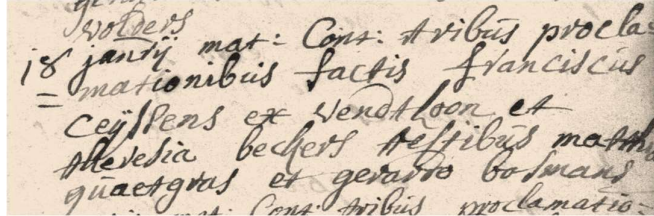 volders
18 janrij mat: Cont: tribus procla-
= mationibus factis franciscus
Ceyssens ex Vendtloon et
theresia beckers testibus
quaetgras et gerardo bosmans
mat: Cont: tribus proclamatio-